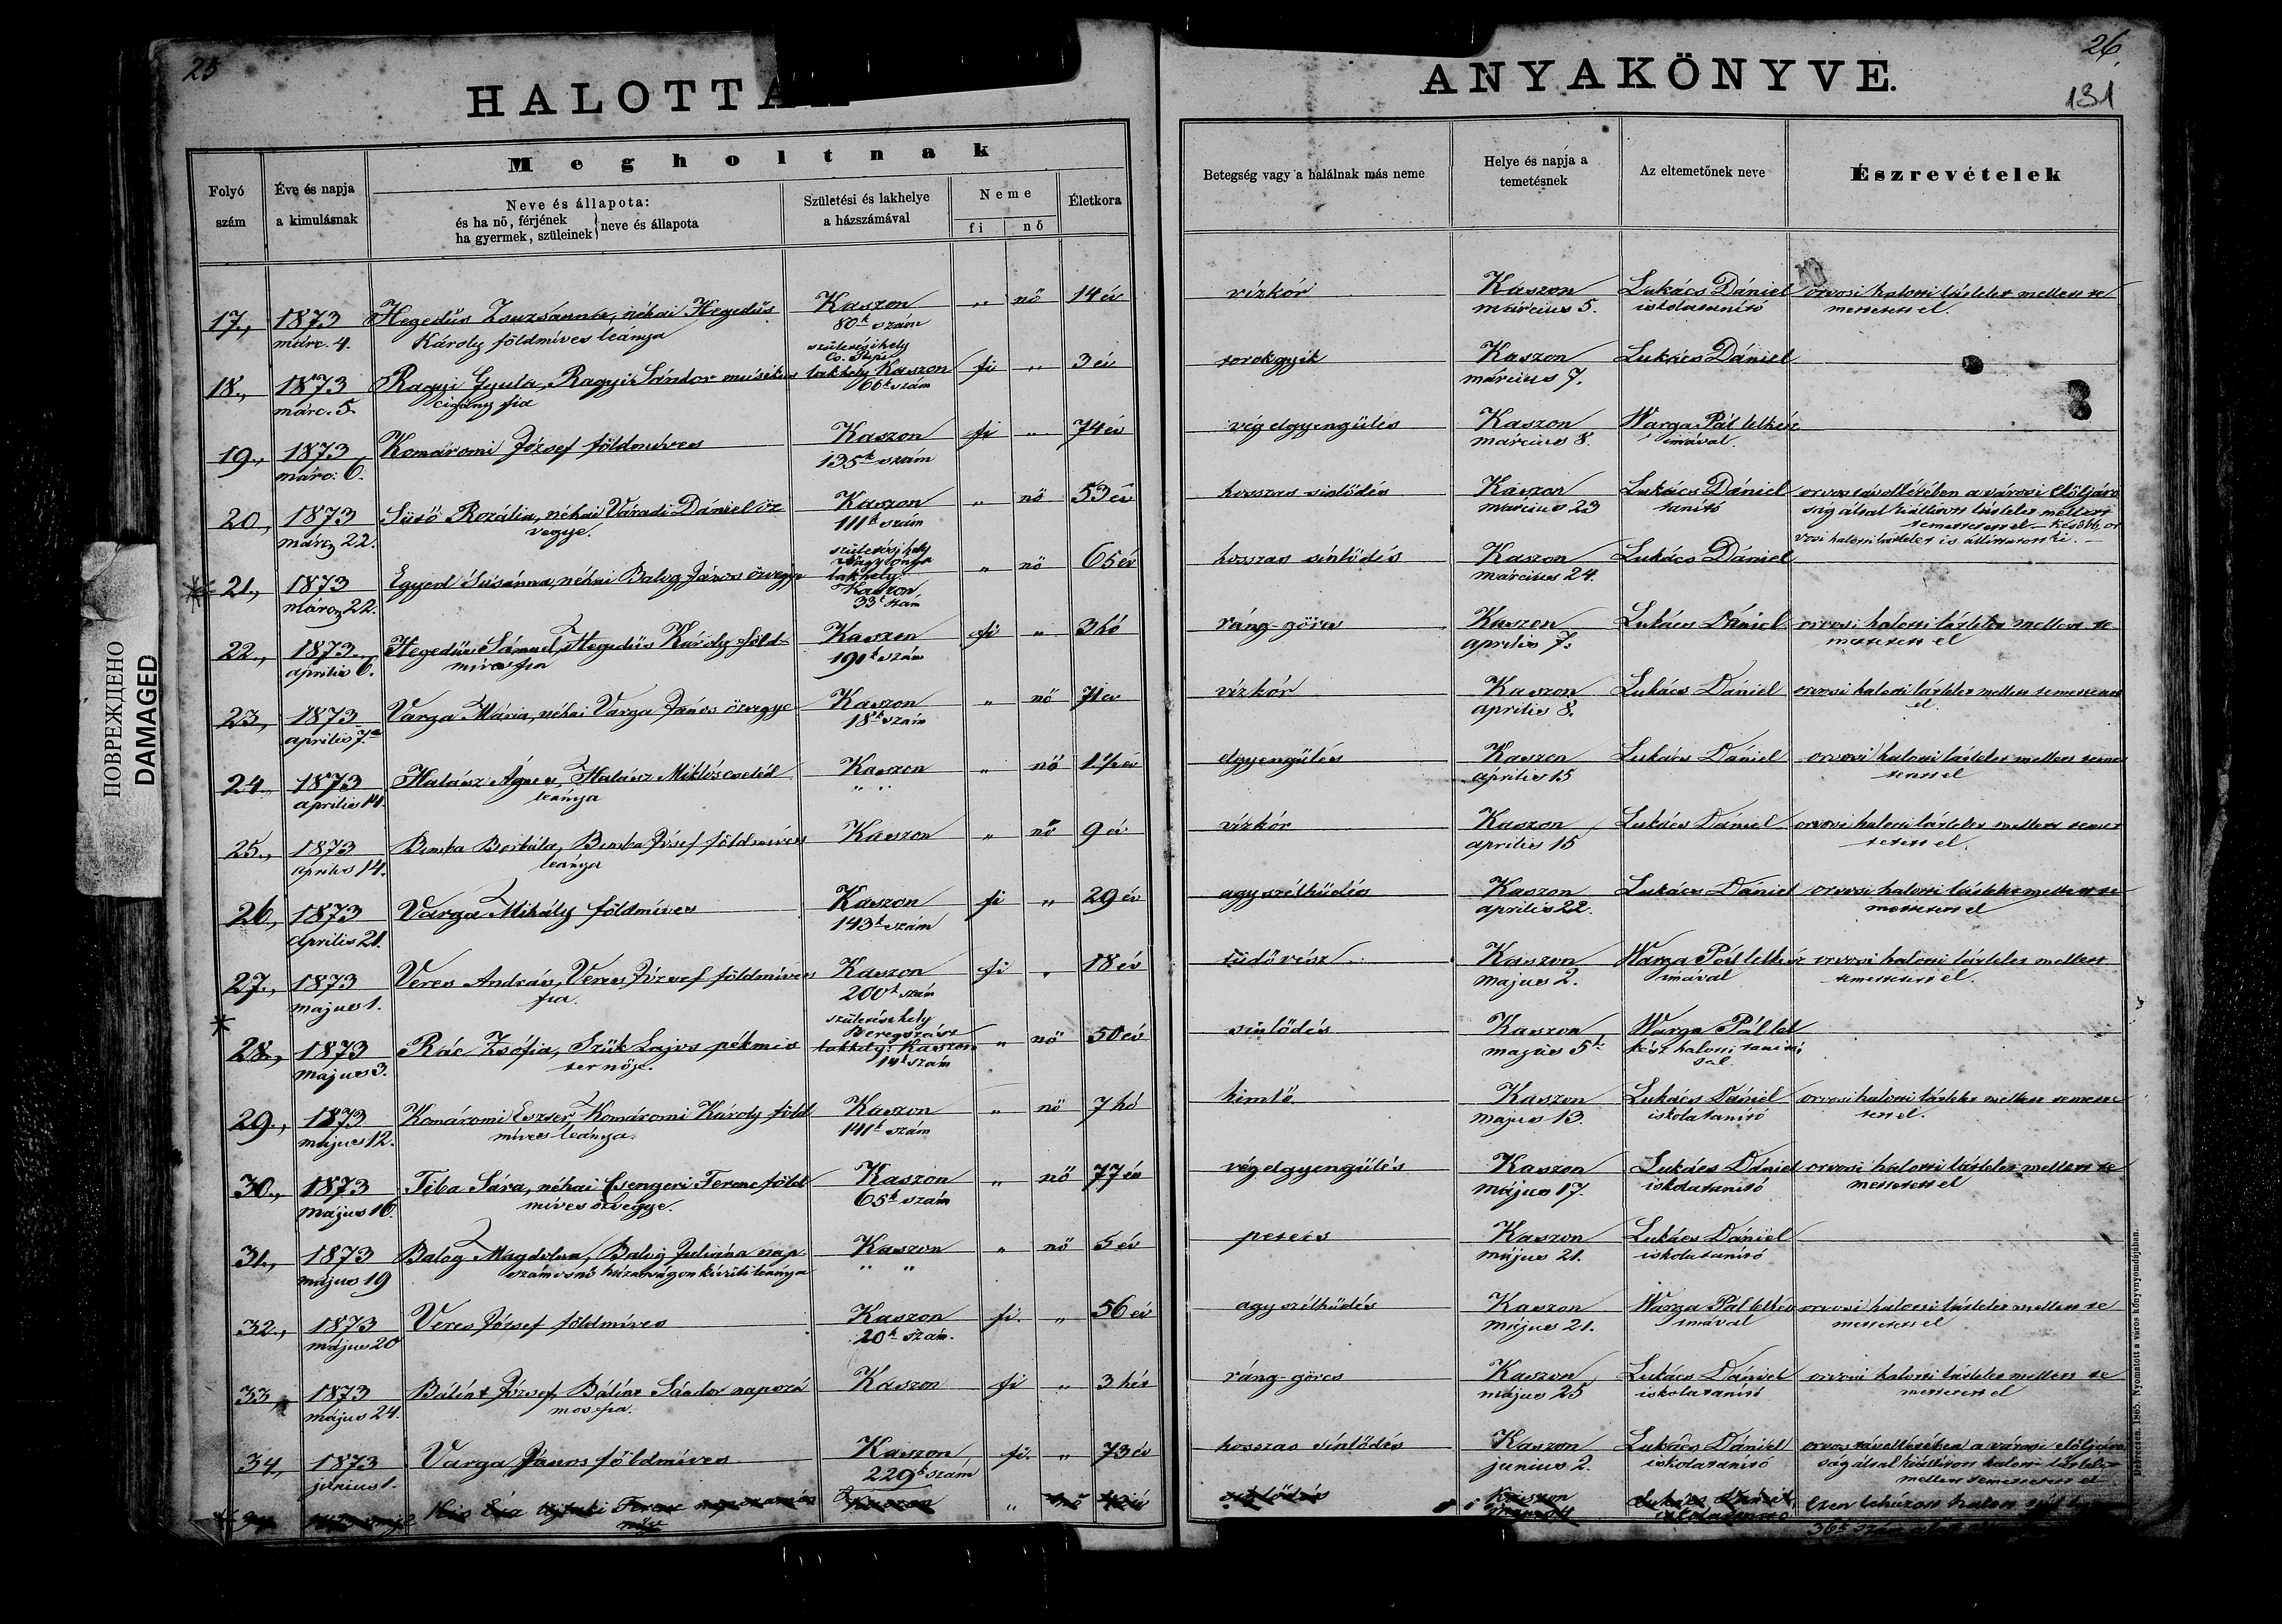 25
HALOTTAK
Megholtnak
Folyó szám
Éve és napja a kimulásnak
Neve és állapota:
és ha nő, férjének
ha gyermek, szüleinek
neve és állapota
Születési és lakhelye a házszámával
Neme
fi nő
Életkora
26.
ANYAKÖNYVE.
131
Betegség vagy a halálnak más neme
Helye és napja a temetésnek
Az eltemetőnek neve
Észrevételek
17., 1873 Hegedűs Zsuzsánna, néhai Hegedűs Kaszon „ nő 14 év vízkór Kaszon Lukács Dániel orvosi halotti látlelet mellett te
márc. 4. Károly földmíves leánya 80k szám március 5. iskolatanító mettetett el.
születési hely
18., 1873 Ragyi Gyula, Ragyi Sándor musikus lakhely Kaszon fi „ 3 év torokgyik Kaszon Lukács Dániel
márc. 5. cigány fia 66k szám március 7.
19., 1873 Komáromi József földmíves Kaszon fi „ 74 év vég elgyengülés Kaszon Warga Pál lelkész
márc. 6. 135k szám március 8. imával.
20., 1873 Sütő Rozália, néhai Váradi Dániel öz Kaszon „ nő 53 év hosszas sinlődés Kaszon Lukács Dániel orvos távollétében a városi Elöljáró
márcz 22. vegye. 111k szám március 23 tanító ság által kiállított látlelet mellett
temettetett el – később or
vosi halotti látlelet is állíttatott ki. –
születési hely
Nagylónya
21., 1873 Egyed Susánna, néhai Balog János özvegye lakhely: „ nő 65 év hosszas sinlődés Kaszon Lukács Dániel
márcz 22. Kaszon március 24.
33k szám
22., 1873 Hegedűs Sámuel, Hegedűs Károly föld Kaszon fi „ 3 hó ráng-görcs Kaszon Lukács Dániel orvosi halotti látlelet mellett te
április 6. míves fia 190k szám április 7. mettetett el
23., 1873 Varga Mária, néhai Varga János özvegye Kaszon „ nő 71 év vízkór Kaszon Lukács Dániel orvosi halotti látlelet mellett temettetett
április 7. 18k szám április 8. el.
24. 1873 Halász Ágnes, Halász Miklós cseléd Kaszon „ nő elgyengülés Kaszon Lukács Dániel orvosi halotti látlelet mellett temet
április 14. leánya „ „ április 15 tetett el
25., 1873 Bimba Borbála, Bimba József földmíves Kaszon „ nő 9 év vízkór Kaszon Lukács Dániel orvosi halotti látlelet mellett temet
április 14. leánya április 15 tetett el.
26., 1873 Varga Mihály földmíves Kaszon fi „ 29 év agyszélhüdés Kaszon Lukács Dániel orvosi halotti látlelet mellett te
április 21. 143k szám április 22. mettetett el
27., 1873 Veres András, Veres József földmíves Kaszon fi „ 18 év tüdővész Kaszon Warga Pál lelkész orvosi halotti látlelet mellett
május 1. fia. 200k szám május 2. imával temettetett el.
születési hely
Beregszász
28., 1873 Rác Zsófia, Szük Lajos pékmes lakhely: Kaszon „ nő 50 év sinlődés Kaszon Warga Pál lel
május 3. ter nője. 14k szám május 5k kész halotti tanítás
sal
29., 1873 Komáromi Eszter, Komáromi Károly föld Kaszon „ nő 7 hó himlő Kaszon Lukács Dániel orvosi halotti látlelet mellett temette
május 12. míves leánya. 141k szám május 13. iskolatanító tett el.
30., 1873 Tiba Sára, néhai Csengeri Ferenc föld Kaszon „ nő 77 év végelgyengülés Kaszon Lukács Dániel orvosi halotti látlelet mellett te
május 16. míves özvegye. 65k szám május 17. iskolatanító mettetett el
31., 1873 Balog Magdolna, Balog Juliánna nap Kaszon „ nő 5 év petecs Kaszon Lukács Dániel
május 19 számosnő házasságon kivüli leánya „ „ május 21. iskolatanító
32., 1873 Veres József földmíves Kaszon fi. „ 56 év agyszélhüdés Kaszon Warga Pál lelkész orvosi halotti látlelet mellett te
május 20 20k szám. május 21. imával mettetett el
33., 1873 Bálint József, Bálint Sándor napszá Kaszon fi „ 3 hét ráng-görcs Kaszon Lukács Dániel orvosi halotti látlelet mellett te
május 24. mos fia. május 25 iskolatanító mettetett el
34., 1873 Varga János földmíves Kaszon, fi. „ 73 év hosszas sinlődés Kaszon Lukács Dániel orvos távollétében a városi elöljáró
június 1. 229k szám június 2. iskolatanító ság által kiállított halotti látlelet
mellett temettetett el
Kis Ferenc napszámos Kaszon „ nő sinlődés Kaszon Lukács Dániel, Ezen lehúzott halott
nője iskolatanító 36k szám alatt
Debreczen. 1865. Nyomatott a város könyvnyomdájában.
ПОВРЕЖДЕНО
DAMAGED